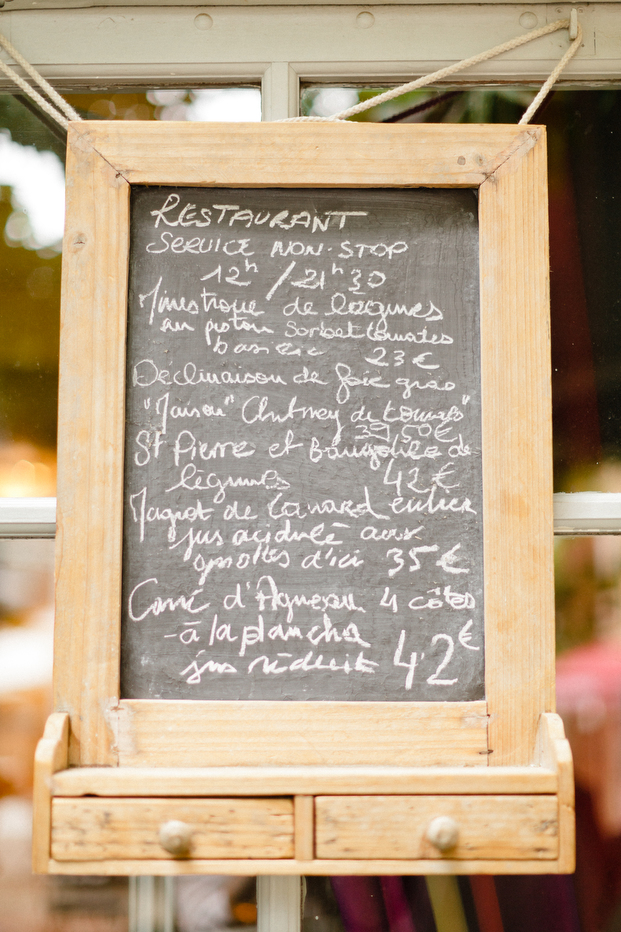 RESTAURANT
SERVICE NON-STOP
12h / 21h30
Minestrone de légumes
au pistou Sorbet tomates
basilic 23€
Déclinaison de foie gras
"Maison" Chutney de tomates"
39,50€
St Pierre et de
légumes 42€
Magret de Canard entier
jus acidulé aux
d'ici 35€
Carré d'Agneau 4 côtes
-à la plancha
jus réduit 42€